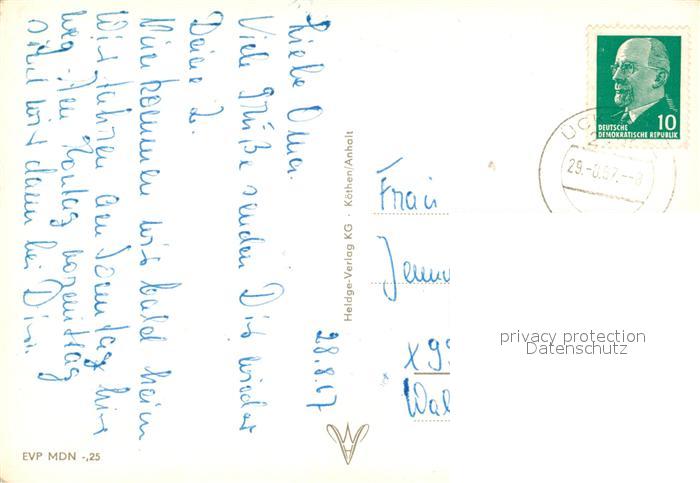 28.8.67
Liebe Oma.
Viele Grüße senden Dir wieder
Deine 2.
Nun kommen wir bald heim
Wir fahren am Sonntag hier
weg. Am Montag vormittag
sind wir dann bei Dir.
Heldge-Verlag KG · Köthen/Anhalt
EVP MDN -,25
DEUTSCHE
DEMOKRATISCHE REPUBLIK
10
29.-8.67.--8
Frau
X 9
Wal
privacy protection
Datenschutz